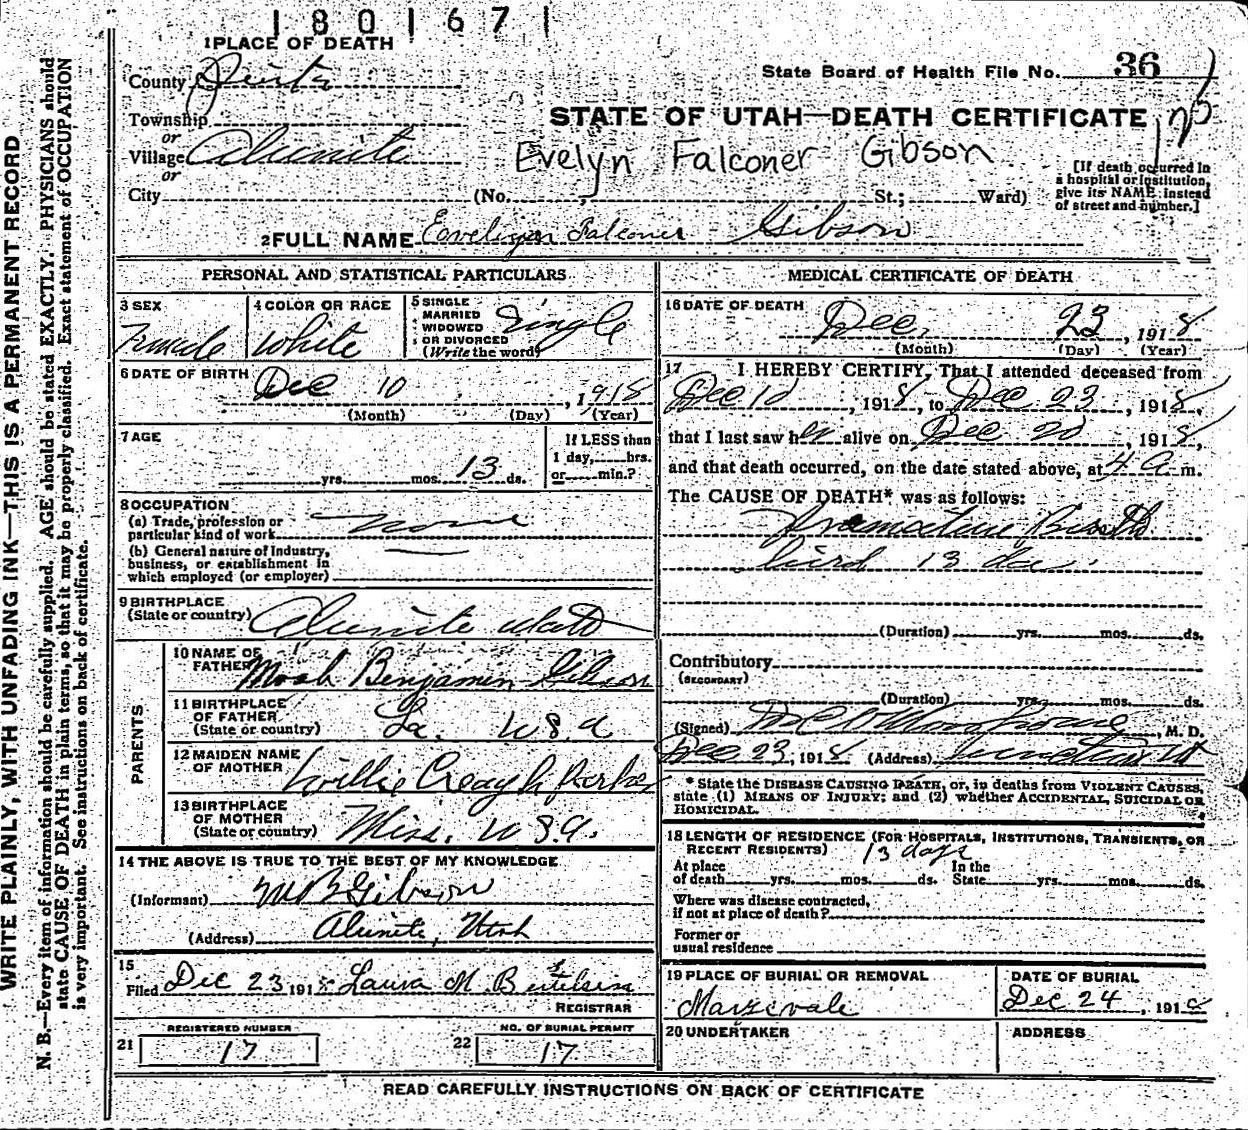 1801671
1 PLACE OF DEATH
County Piute
State Board of Health File No. 36
Township
or
Village Alunite
or
City
STATE OF UTAH—DEATH CERTIFICATE 125
Evelyn Falconer Gibson
(No. St.; Ward)
[If death occurred in
a hospital or institution,
give its NAME instead
of street and number.]
2 FULL NAME Falconer Gibson
PERSONAL AND STATISTICAL PARTICULARS
3 SEX
Female
4 COLOR OR RACE
White
5 SINGLE
MARRIED
WIDOWED
OR DIVORCED
(Write the word)
Single
6 DATE OF BIRTH
Dec 10, 1918
(Month) (Day) (Year)
7 AGE
yrs. mos. 13 ds.
If LESS than
1 day, hrs.
or min.?
8 OCCUPATION
(a) Trade, profession or
particular kind of work none
(b) General nature of industry,
business, or establishment in
which employed (or employer)
9 BIRTHPLACE
(State or country) Alunite Utah
PARENTS
10 NAME OF
FATHER Benjamin Gibson
11 BIRTHPLACE
OF FATHER
(State or country) La. U S A
12 MAIDEN NAME
OF MOTHER Willie Creagh
13 BIRTHPLACE
OF MOTHER
(State or country) Miss. U S A.
14 THE ABOVE IS TRUE TO THE BEST OF MY KNOWLEDGE
(Informant) M B Gibson
(Address) Alunite, Utah
15
Filed Dec 23 1918 Laura M.
REGISTRAR
REGISTERED NUMBER
21 17
NO. OF BURIAL PERMIT
22 17
MEDICAL CERTIFICATE OF DEATH
16 DATE OF DEATH
Dec. 23, 1918
(Month) (Day) (Year)
17 I HEREBY CERTIFY, That I attended deceased from
Dec 10, 1918, to Dec 23, 1918,
that I last saw her alive on Dec 20, 1918,
and that death occurred, on the date stated above, at 4 a m.
The CAUSE OF DEATH* was as follows:
Premature Birth
lived 13 da.
(Duration) yrs. mos. ds.
Contributory
(SECONDARY)
(Duration) yrs. mos. ds.
(Signed) , M. D.
Dec 23, 1918 (Address) Junction Ut
* State the DISEASE CAUSING DEATH, or, in deaths from VIOLENT CAUSES,
state (1) MEANS OF INJURY; and (2) whether ACCIDENTAL, SUICIDAL OR
HOMICIDAL.
18 LENGTH OF RESIDENCE (FOR HOSPITALS, INSTITUTIONS, TRANSIENTS, OR
RECENT RESIDENTS) 13 days
At place
of death yrs. mos. ds.
In the
State yrs. mos. ds.
Where was disease contracted,
if not at place of death?
Former or
usual residence
19 PLACE OF BURIAL OR REMOVAL
Marysvale
DATE OF BURIAL
Dec 24, 191
20 UNDERTAKER
ADDRESS
READ CAREFULLY INSTRUCTIONS ON BACK OF CERTIFICATE
WRITE PLAINLY, WITH UNFADING INK—THIS IS A PERMANENT RECORD
N. B.—Every item of information should be carefully supplied. AGE should be stated EXACTLY. PHYSICIANS should
state CAUSE OF DEATH in plain terms, so that it may be properly classified. Exact statement of OCCUPATION
is very important. See instructions on back of certificate.